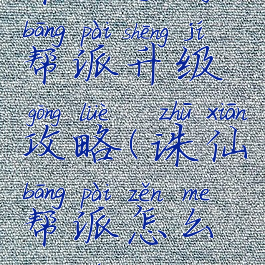 bāng pài shēng jí
帮派升级
gōng lüè zhū xiān
攻略(诛仙
bāng pài zěn me
帮派怎么